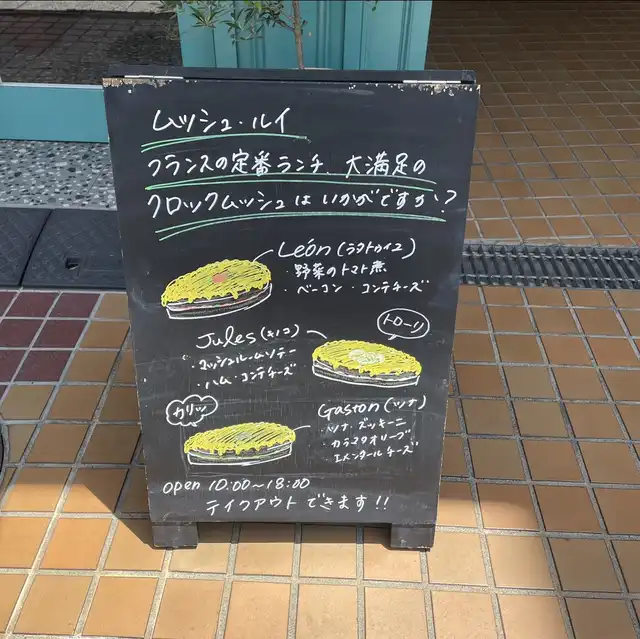 ムッシュ・ルイ
フランスの定番ランチ、大満足の
クロックムッシュはいかがですか?
León (ラタトゥイユ)
・野菜のトマト煮
・ベーコン・コンテチーズ
Jules (キノコ)
・マッシュルームソテー
・ハム・コンテチーズ
トロ〜リ
カリッ
Gaston (ツナ)
・ツナ・ズッキーニ
・カラマタオリーブ
エメンタールチーズ
open 10:00〜18:00
テイクアウトできます!!